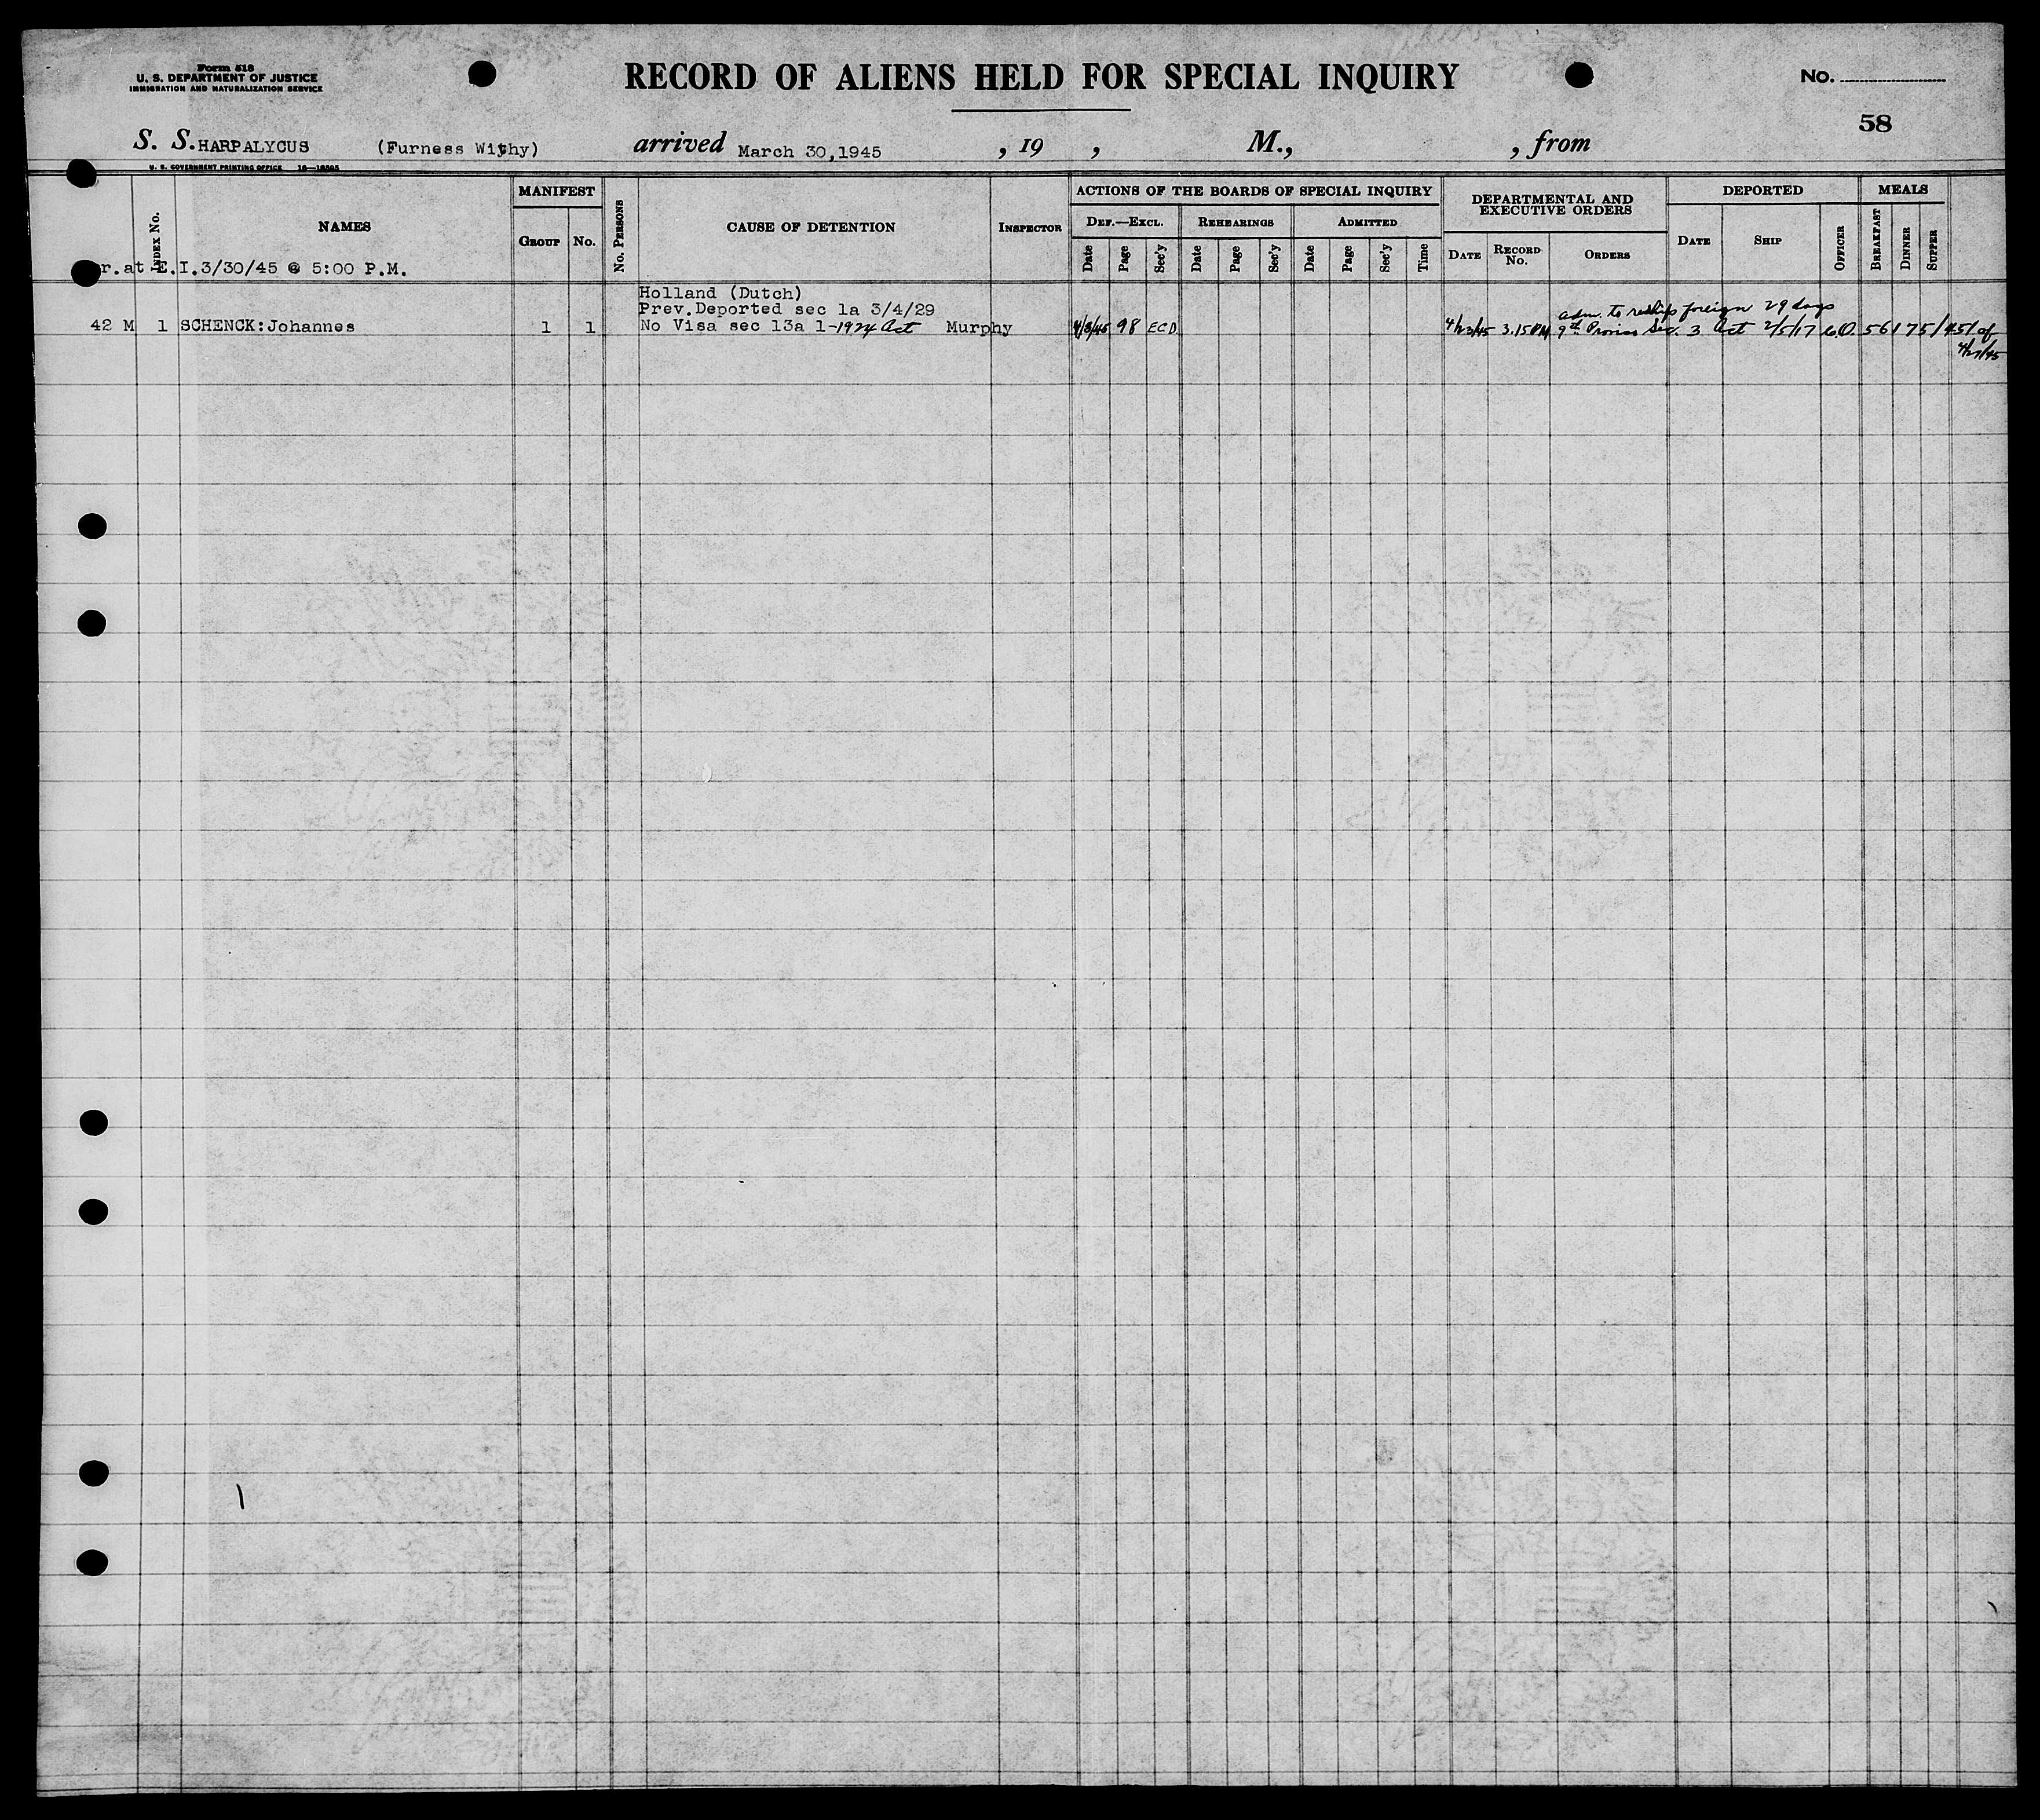 Form 518
U. S. DEPARTMENT OF JUSTICE
IMMIGRATION AND NATURALIZATION SERVICE
RECORD OF ALIENS HELD FOR SPECIAL INQUIRY
No.
58
S. S. HARPALYCUS (Furness Withy) arrived March 30,1945 , 19 , M., , from
U. S. GOVERNMENT PRINTING OFFICE
Index No.
NAMES
MANIFEST
Group No.
No. Persons
CAUSE OF DETENTION
Inspector
ACTIONS OF THE BOARDS OF SPECIAL INQUIRY
Def.—Excl. Rehearings Admitted
Date Page Sec'y Date Page Sec'y Date Page Sec'y Time
DEPARTMENTAL AND
EXECUTIVE ORDERS
Date Record No. Orders
DEPORTED
Date Ship Officer
MEALS
Breakfast Dinner Supper
r.at E.I.3/30/45 @ 5:00 P.M.
Holland (Dutch)
Prev.Deported sec 1a 3/4/29
adm. to reship foreign 29 days
42 M 1 SCHENCK:Johannes 1 1 No Visa sec 13a 1-1924 Act Murphy 98 ECD 4/23/45 3.15PM 9th Proviso Sec. 3 Act 2/5/17 56175/451 of